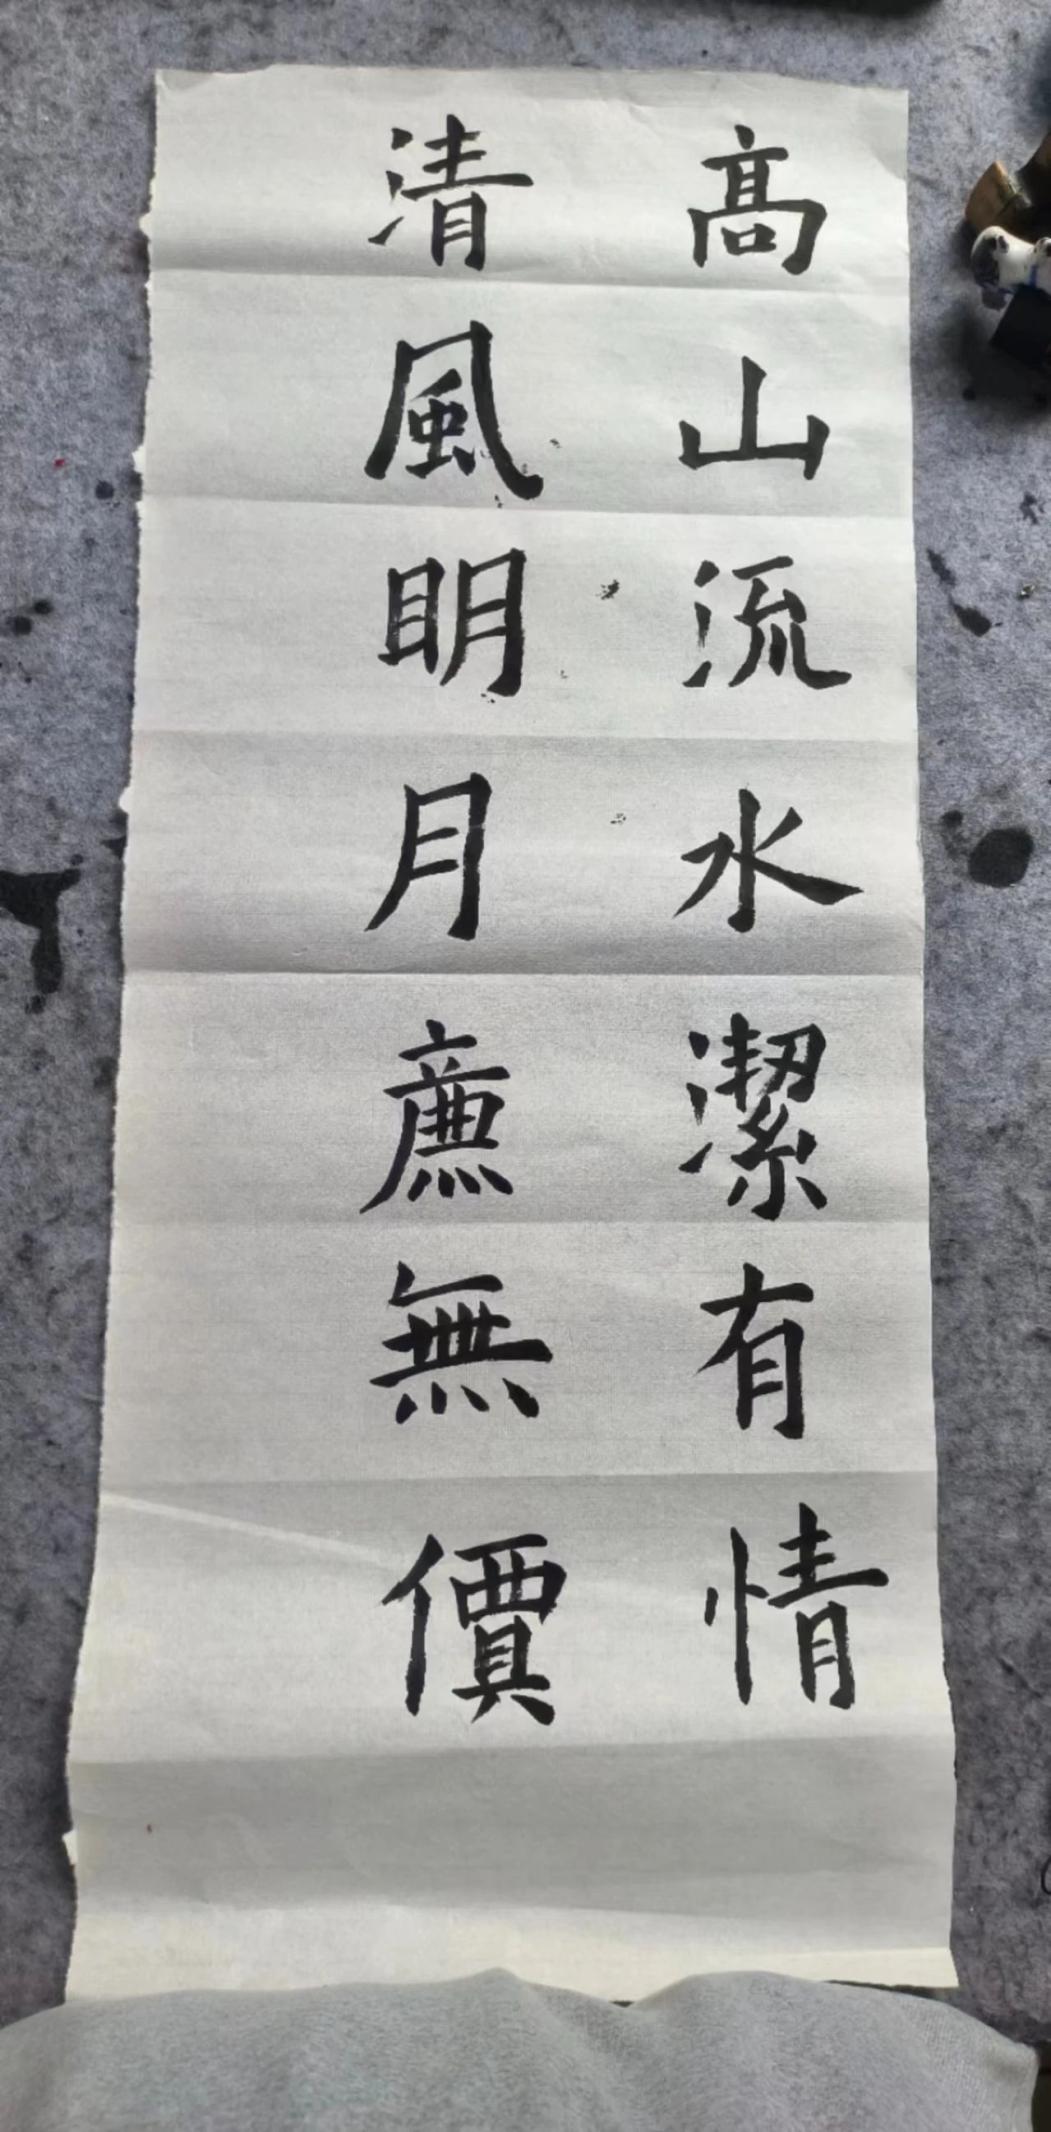 髙山流水潔有情
清風明月廉無價